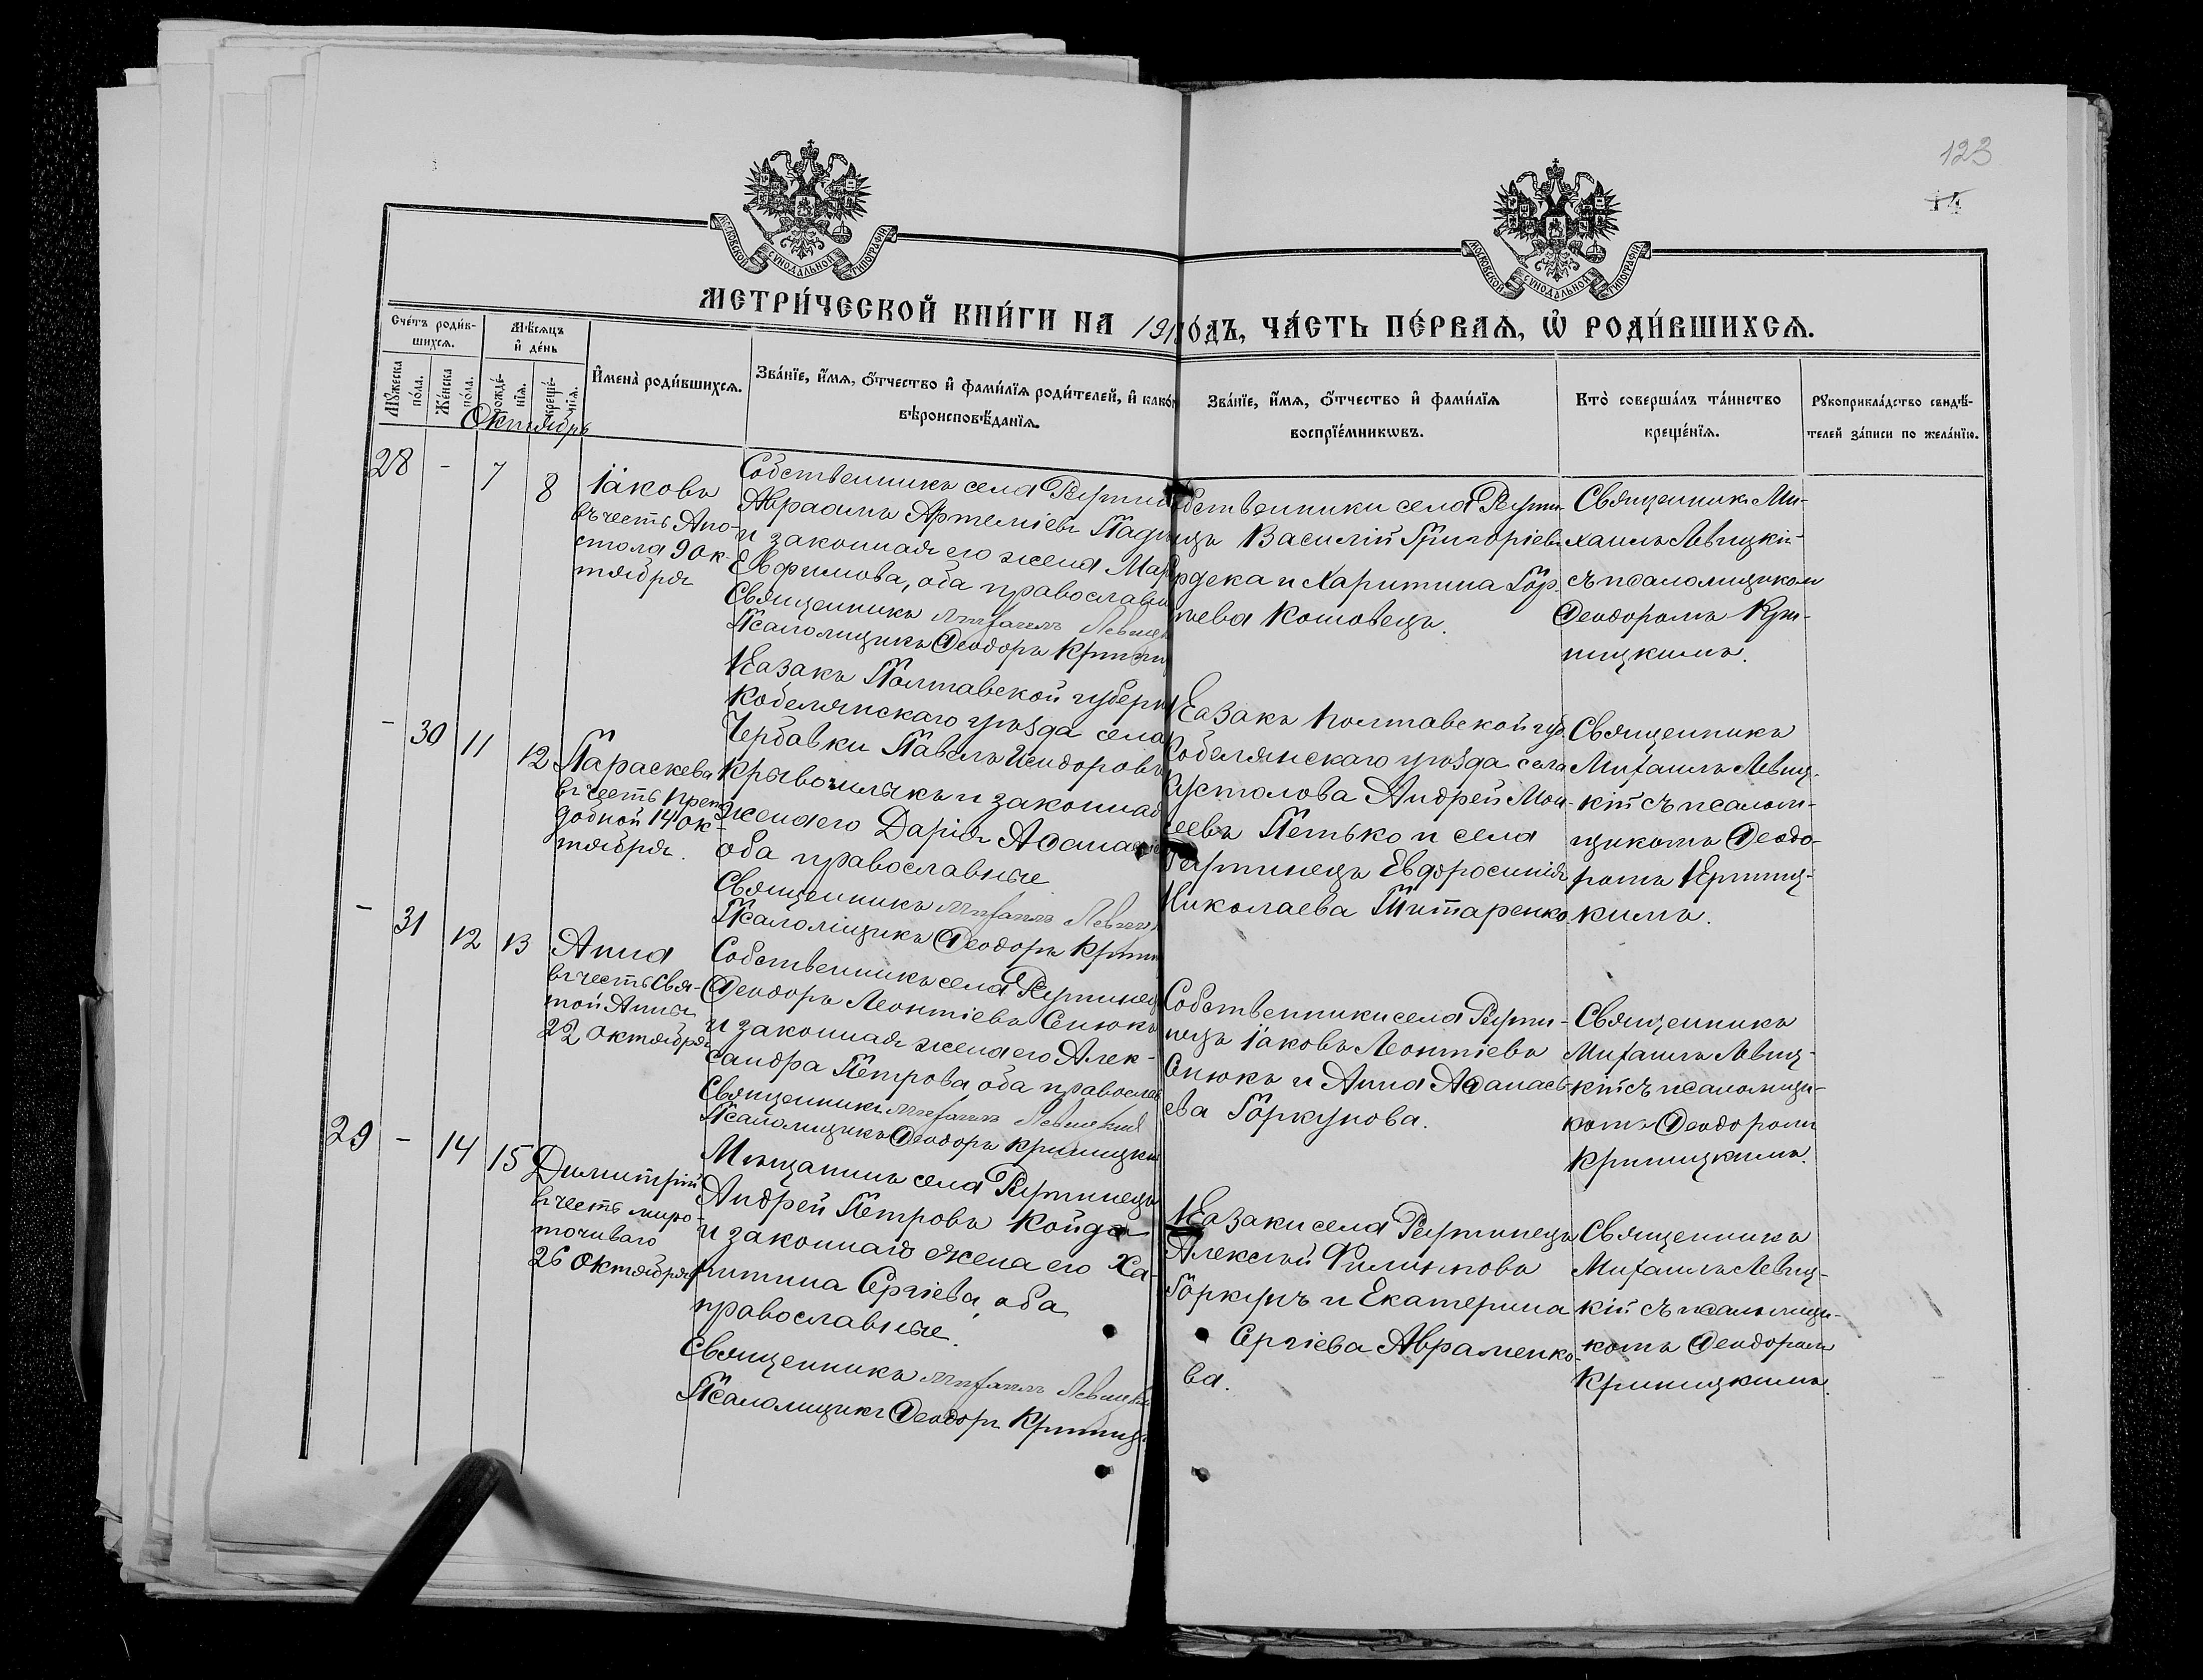 123
МОСКОВСКОЙ СУНОДАЛЬНОЙ ТИПОГРАФІИ
МОСКОВСКОЙ СУНОДАЛЬНОЙ ТИПОГРАФІИ
МЕТРИ́ЧЕСКОЙ КНИ́ГИ НА 191 го́дъ, ЧА́СТЬ ПЕ́РВАЯ, Ѡ҆ РОДИ́ВШИХСЯ.
Сче́тъ роди́в-
шихся.
Мѣ́сяцъ
и҆ де́нь
Мꙋ́жеска
по́ла.
Же́нска
по́ла.
рожде́-
нїя.
креще́-
нїя.
И҆мена̀ роди́вшихся.
Зва́нїе, и҆́мя, ѻ҆́тчество и҆ фами́лїя роди́телей, и҆ како́гѡ
вѣроисповѣ́данїя.
Зва́нїе, и҆́мя, ѻ҆́тчество и҆ фами́лїя
воспрїе́мникѡвъ.
Кто̀ соверша́лъ та́инство
креще́нїя.
Рꙋкоприкла́дство свидѣ́-
телей за́писи по жела́нїю.
Октябрь
28
-
7
8
Іаковъ
въ честь Апо-
стола 9 Ок-
тября
Собственникъ села
Авраамъ Артеміевъ
и законная его жена
Евфимова, оба православн
Священникъ Михаилъ Левиц
Псаломщикъ Ѳеодоръ Криниц
бственники села
Василій Григоріевъ
рдека и Харитина Гор-
ѣева Кошовецъ.
Священникъ Ми-
хаилъ Левицкій
съ псаломщикомъ
Ѳеодоромъ Кри-
ницкимъ.
-
30
11
12
Параскева
въ честь препо-
добной 14 Ок-
тября.
Казакъ Полтавской губерн
Кобелянскаго уѣзда села
Павелъ Исидоровъ
и законная
жена его Дарія Аѳанасіе
оба православные
Священникъ Михаилъ Левиц
Псаломщикъ Ѳеодоръ Крини
Казакъ Полтавской гуо
Кобелянскаго уѣзда села
Андрей Мои-
сеевъ Петько и села
Евфросинія
Николаева Титаренко.
Священникъ
Михаилъ Левиц-
кій съ псалом-
щикомъ Ѳеодо-
ромъ Криниц-
кимъ.
-
31
12
13
Анна
въ честь Свя-
той Анны
22 Октября
Собственникъ села
Ѳеодоръ Леонтіевъ Снюкъ
и законная жена его Алек-
сандра Петрова оба православ
Священникъ Михаилъ Левицкій
Псаломщикъ Ѳеодоръ Криницкій
Собственники села
Іаковъ Леонтіевъ
Снюкъ и Анна Аѳанась-
ева Горкунова.
Священникъ
Михаилъ Левиц-
кій съ псаломщи-
комъ Ѳеодоромъ
Криницкимъ.
29
-
14
15
Димитрій
въ честь миро-
точиваго
26 Октября
Мѣщанинъ села
Андрей Петровъ Койда
и законная жена его Ха-
ритина Сергіева, оба
православные.
Священникъ Михаилъ Левицкій
Псаломщикъ Ѳеодоръ Криниц
Казаки села
Алексѣй Филипповъ
Горкунъ и Екатерина
Сергіева Авраменко-
ва.
Священникъ
Михаилъ Левиц-
кій съ псаломщи-
комъ Ѳеодоромъ
Криницкимъ.